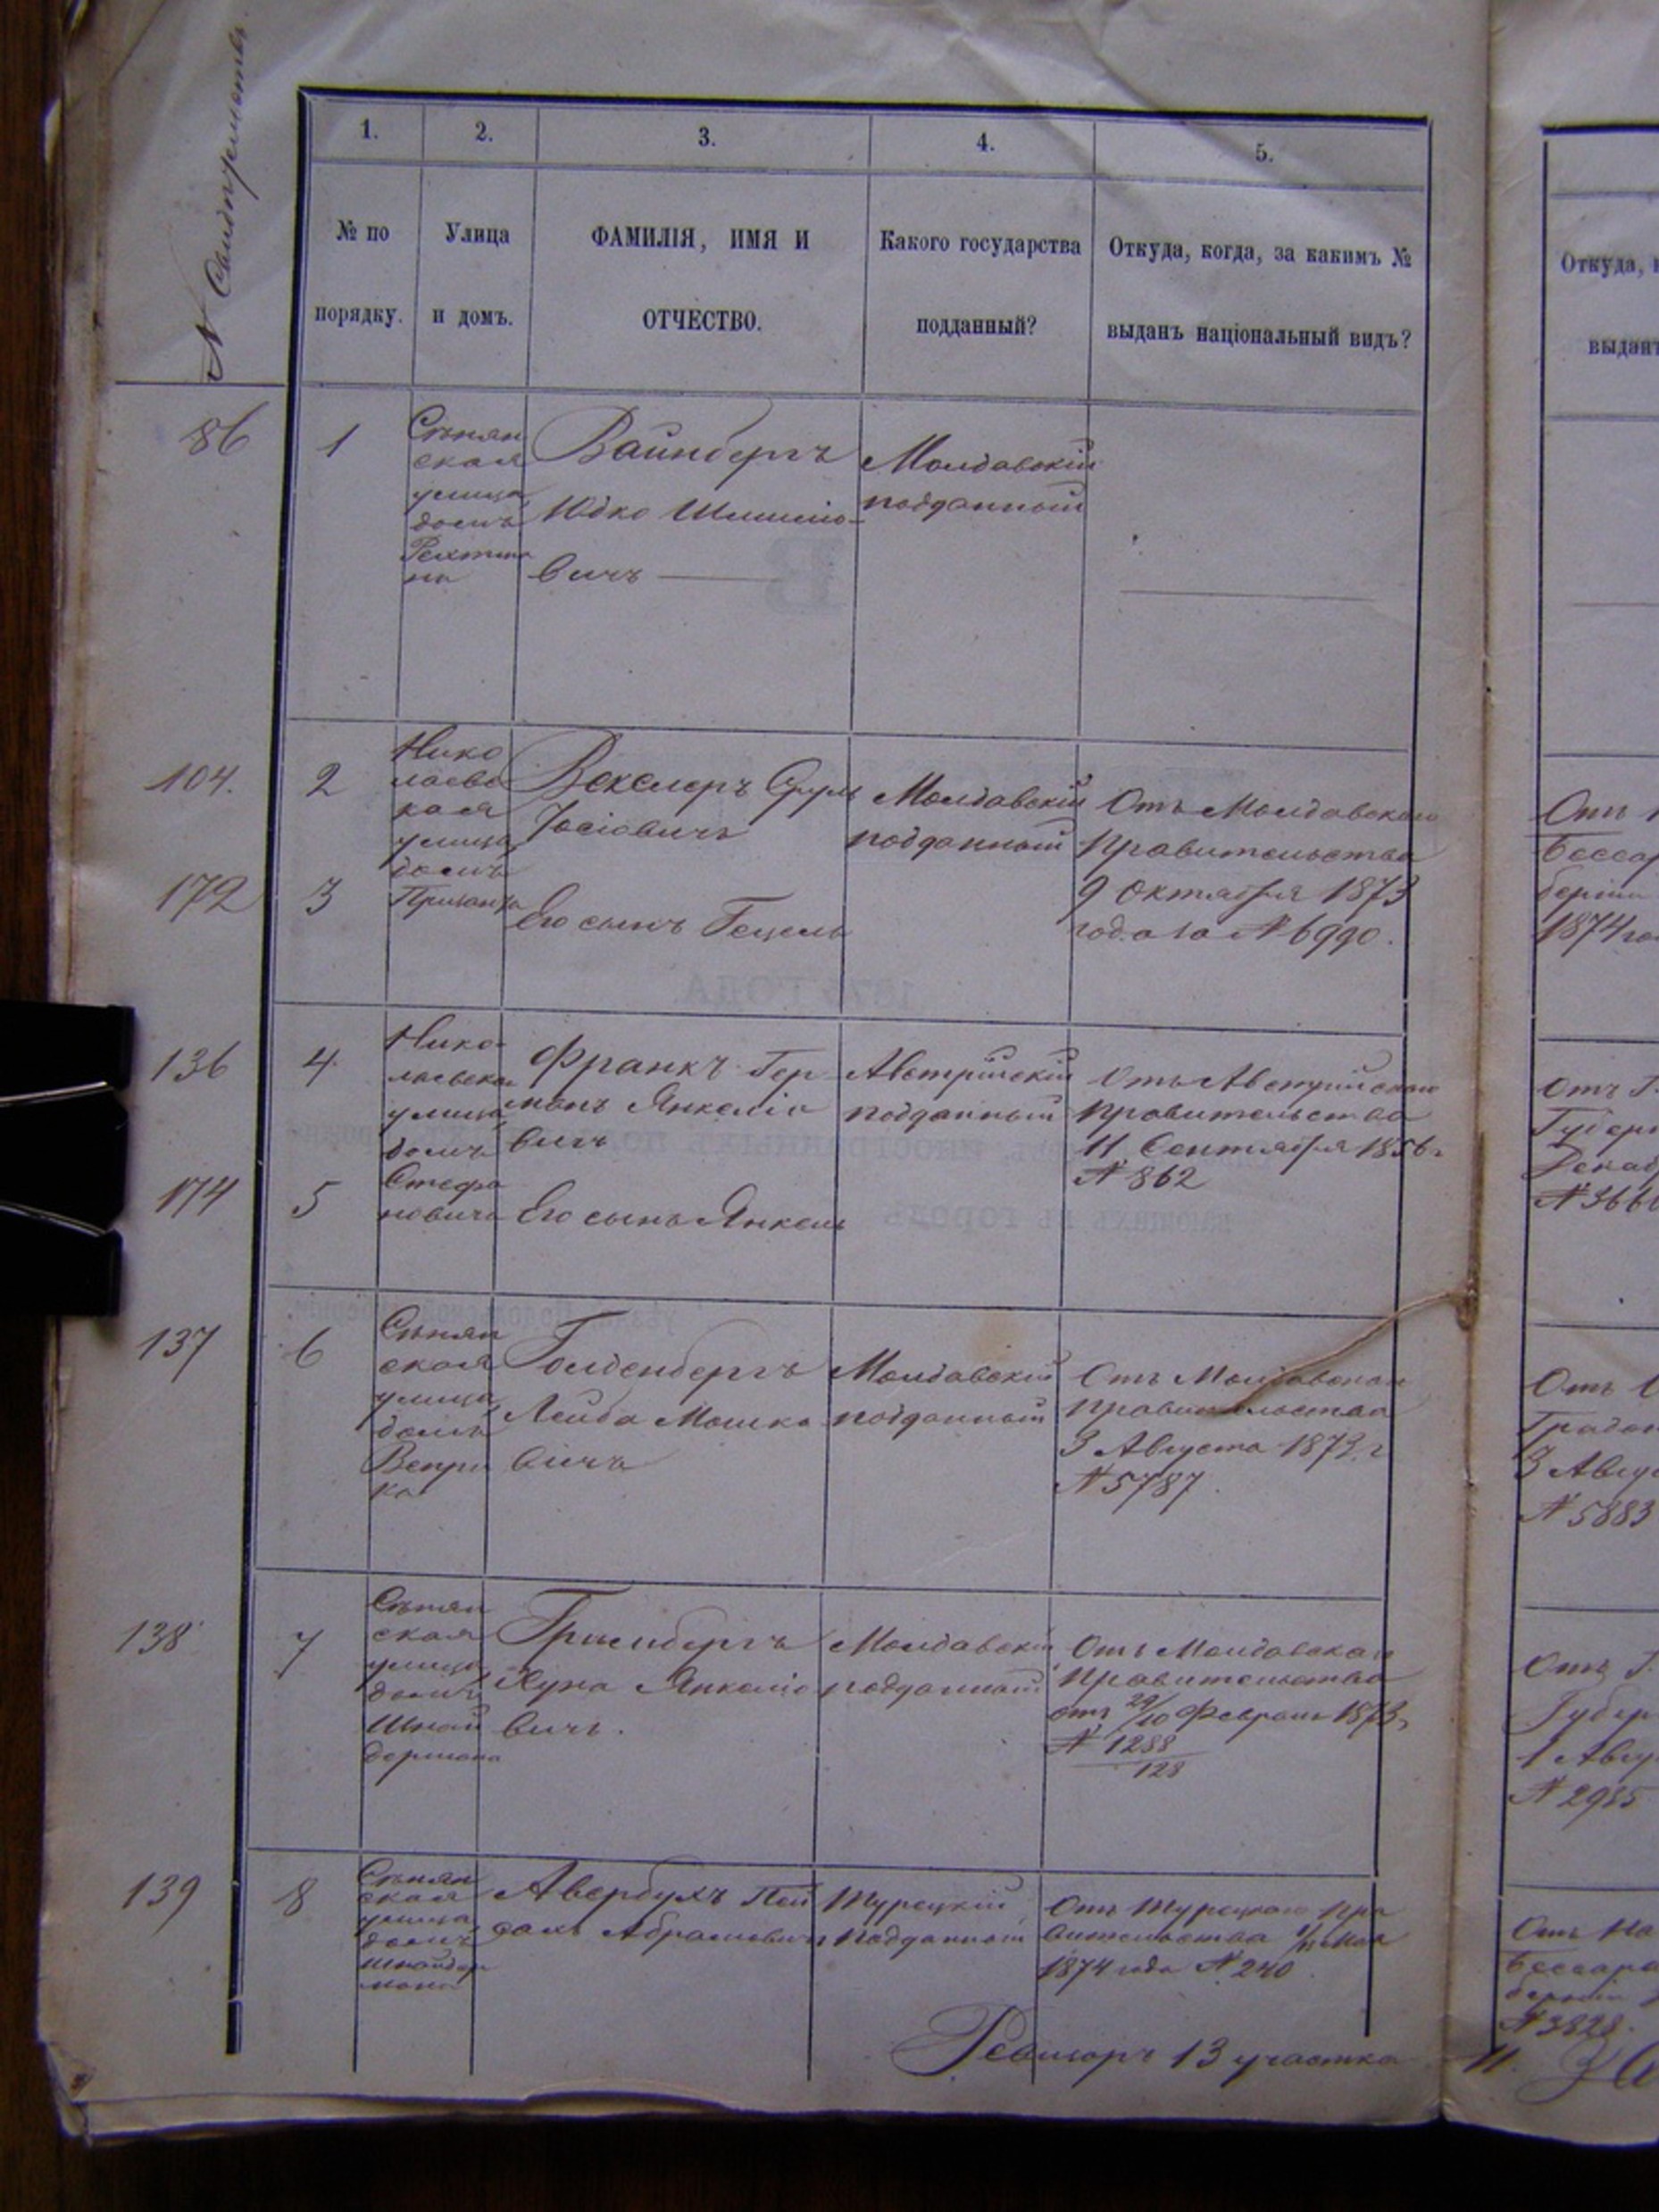 № Свидѣтельствъ
1. 2. 3. 4. 5.
№ по порядку.
Улица и домъ.
ФАМИЛІЯ, ИМЯ И ОТЧЕСТВО.
Какого государства подданный?
Откуда, когда, за какимъ № выданъ національный видъ?
Откуда,
выданъ
86
1
ская
улица
домъ
Вайнбергъ
Юдко
вичъ
Молдавскій
подданный
104.
2
Нико
лаевс
кая
улица
домъ
Векслеръ Сруль
Іосіовичъ
Молдавскій
подданный
Отъ Молдавскаго
Правительства
9 Октября 1873
года за № 6990.
172
3
Его сынъ Гецель
136
4.
Нико
лаевска
улица
домъ
Стефа
новича
Франкъ Гер
манъ Янкеліо
вичъ
Австрійскій
подданный
Отъ Австрійскаго
Правительства
11 Сентября 1856 г
№ 862
174
5
Его сынъ Янкель
137
6
ская
улица
домъ
Гольденбергъ
Лейба Мошко
вичъ
Молдавскій
подданный
Отъ Молдавскаго
Правительства
3 Августа 1873 г
№ 5787.
138
7
ская
улица
домъ
Шнай
дермана
Гринбергъ
Янкеліо
вичъ.
Молдавскій
подданный
Отъ Молдавскаго
Правительства
отъ Февраля 1873 г
№ 1288
128
139
8
ская
улица
домъ
Шнайдер
мана
Авербухъ Пей
сахъ Абрамовичъ
Турецкій
Подданный
Отъ Турецкаго Пра
вительства Мая
1874 года № 240
Ревизоръ 13 участка
Отъ
Бессар
берніи
1874 го
Отъ Г.
Губерн
Декаб
Отъ
Градон
3 Авгу
№ 5883
Отъ Г.
Губер
1 Авгу
№ 2985
Отъ На
Бессара
берніи
№ 3828.